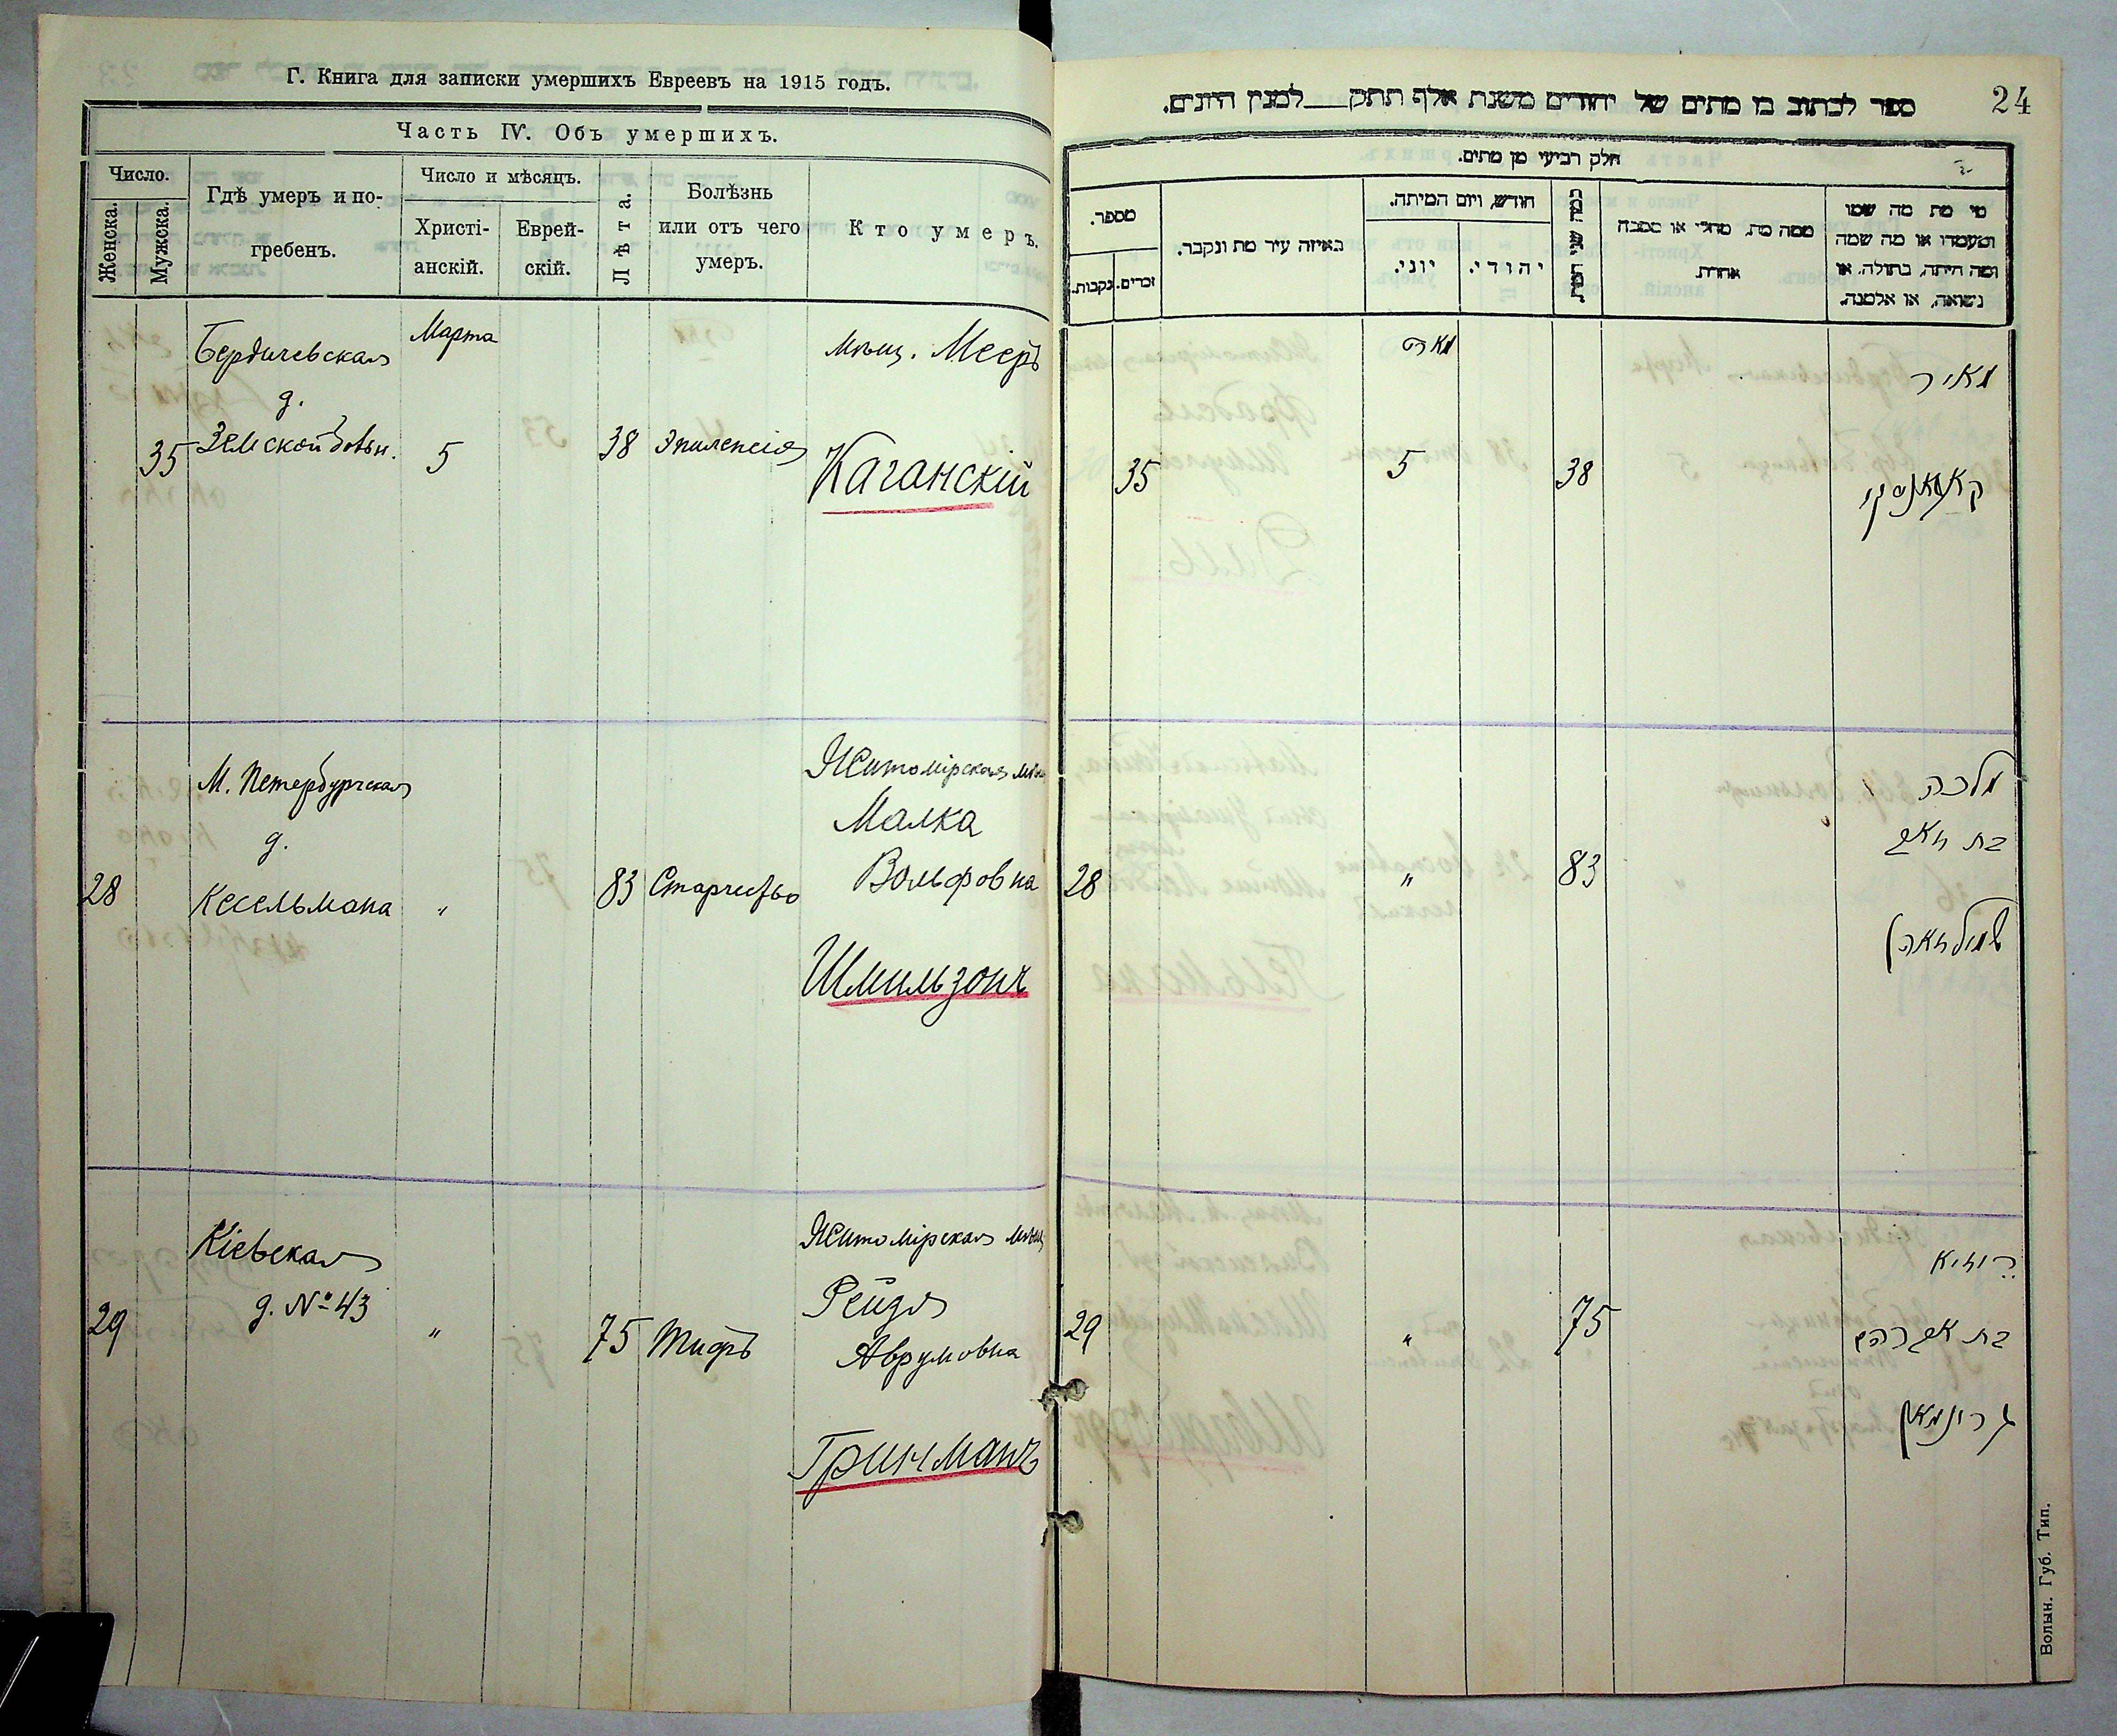 Г. Книга для записки умершихъ Евреевъ на 1915 годъ.
Часть IV. Объ умершихъ.
Число.
Женска.
Мужска.
Гдѣ умеръ и по-
гребенъ.
Число и мѣсяцъ.
Христі-
анскій.
Еврей-
скій.
Лѣта.
Болѣзнь
или отъ чего
умеръ.
Кто умеръ.
Бердичевская
д.
Земской больн.
35
Марта
5
38
Эпилепсія
мѣщ. Мееръ
Каганскій
28
М. Петербургская
д.
Кесельмана
"
83
Старчество
Житомірская мѣщ
Малка
Вольфовна
Шмильзонъ
29
Кіевская
д. № 43
"
75
Тифъ
Житомірская мѣщ
Рейзя
Аврумовна
Гринманъ
24
ספר לכתוב בו מתים של יהודים משנת אלף תתק למנין היונים.
חלק רביעי מן מתים.
מספר.
נקבות.
זכרים.
באיזה עיר מת ונקבר.
חודש, ויום המיתה.
יוני.
יהודי.
כמה שני המת
ממה מת, מחלי או מסבה
אחרת
מי מת מה שמו
ומעמדו או מה שמה
ומה היתה, בתולה, או
נשואה, או אלמנה.
35
מארט
5
38
מאיר
קאגאנסקי
28
"
83
מלכה
בת וואלף
29
"
75
רייזיא
בת אברהם
גרינמאן
Волын. Губ. Тип.